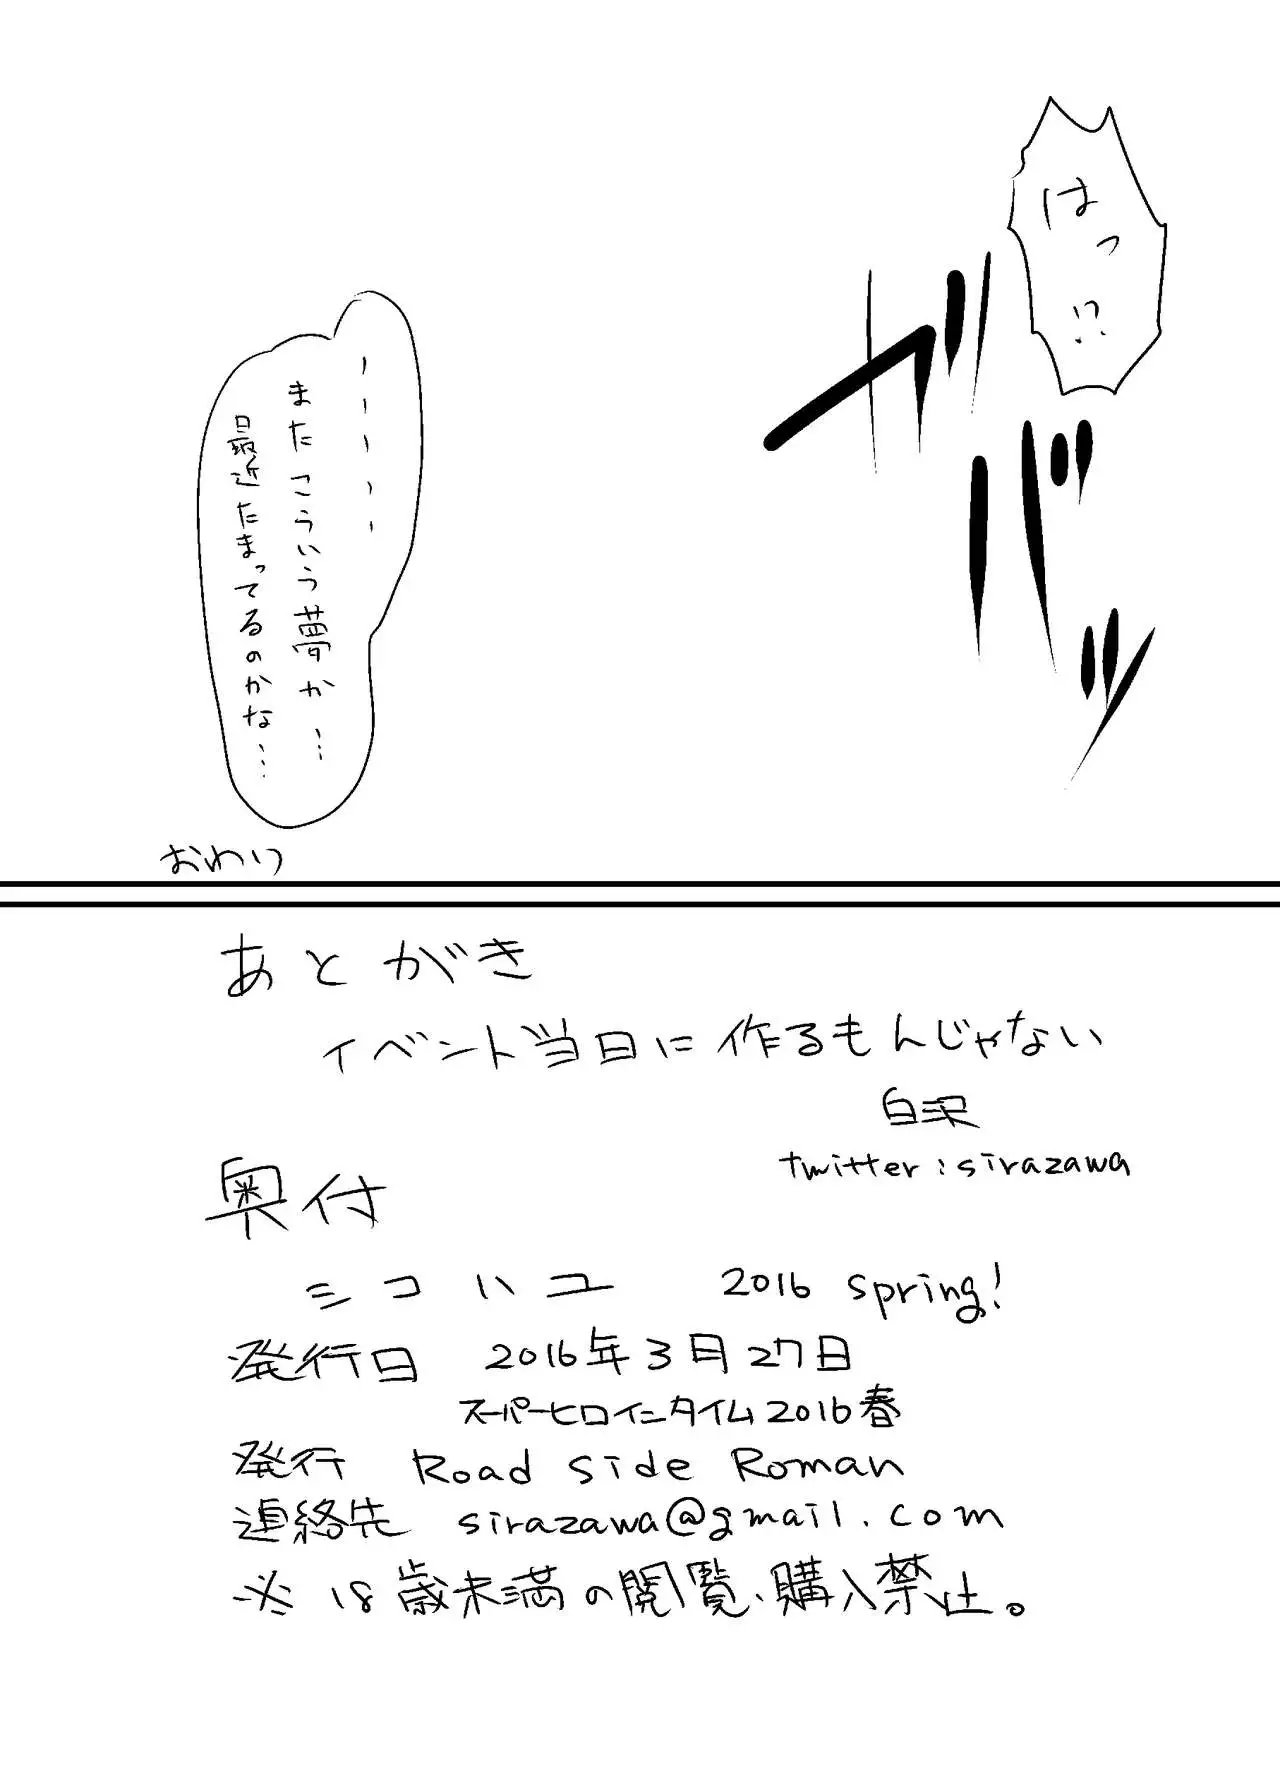 はっ!?
ガバッ
・・・・・
またこういう夢か…
最近たまってるのかな…
おわり
あとがき
イベント当日に作るもんじゃない
白沢
twitter:sirazawa
奥付
シコハユ 2016 spring!
発行日 2016年3月27日
スーパーヒロインタイム2016春
発行 Road side Roman
連絡先 sirazawa@gmail.com
※18歳未満の閲覧、購入禁止。